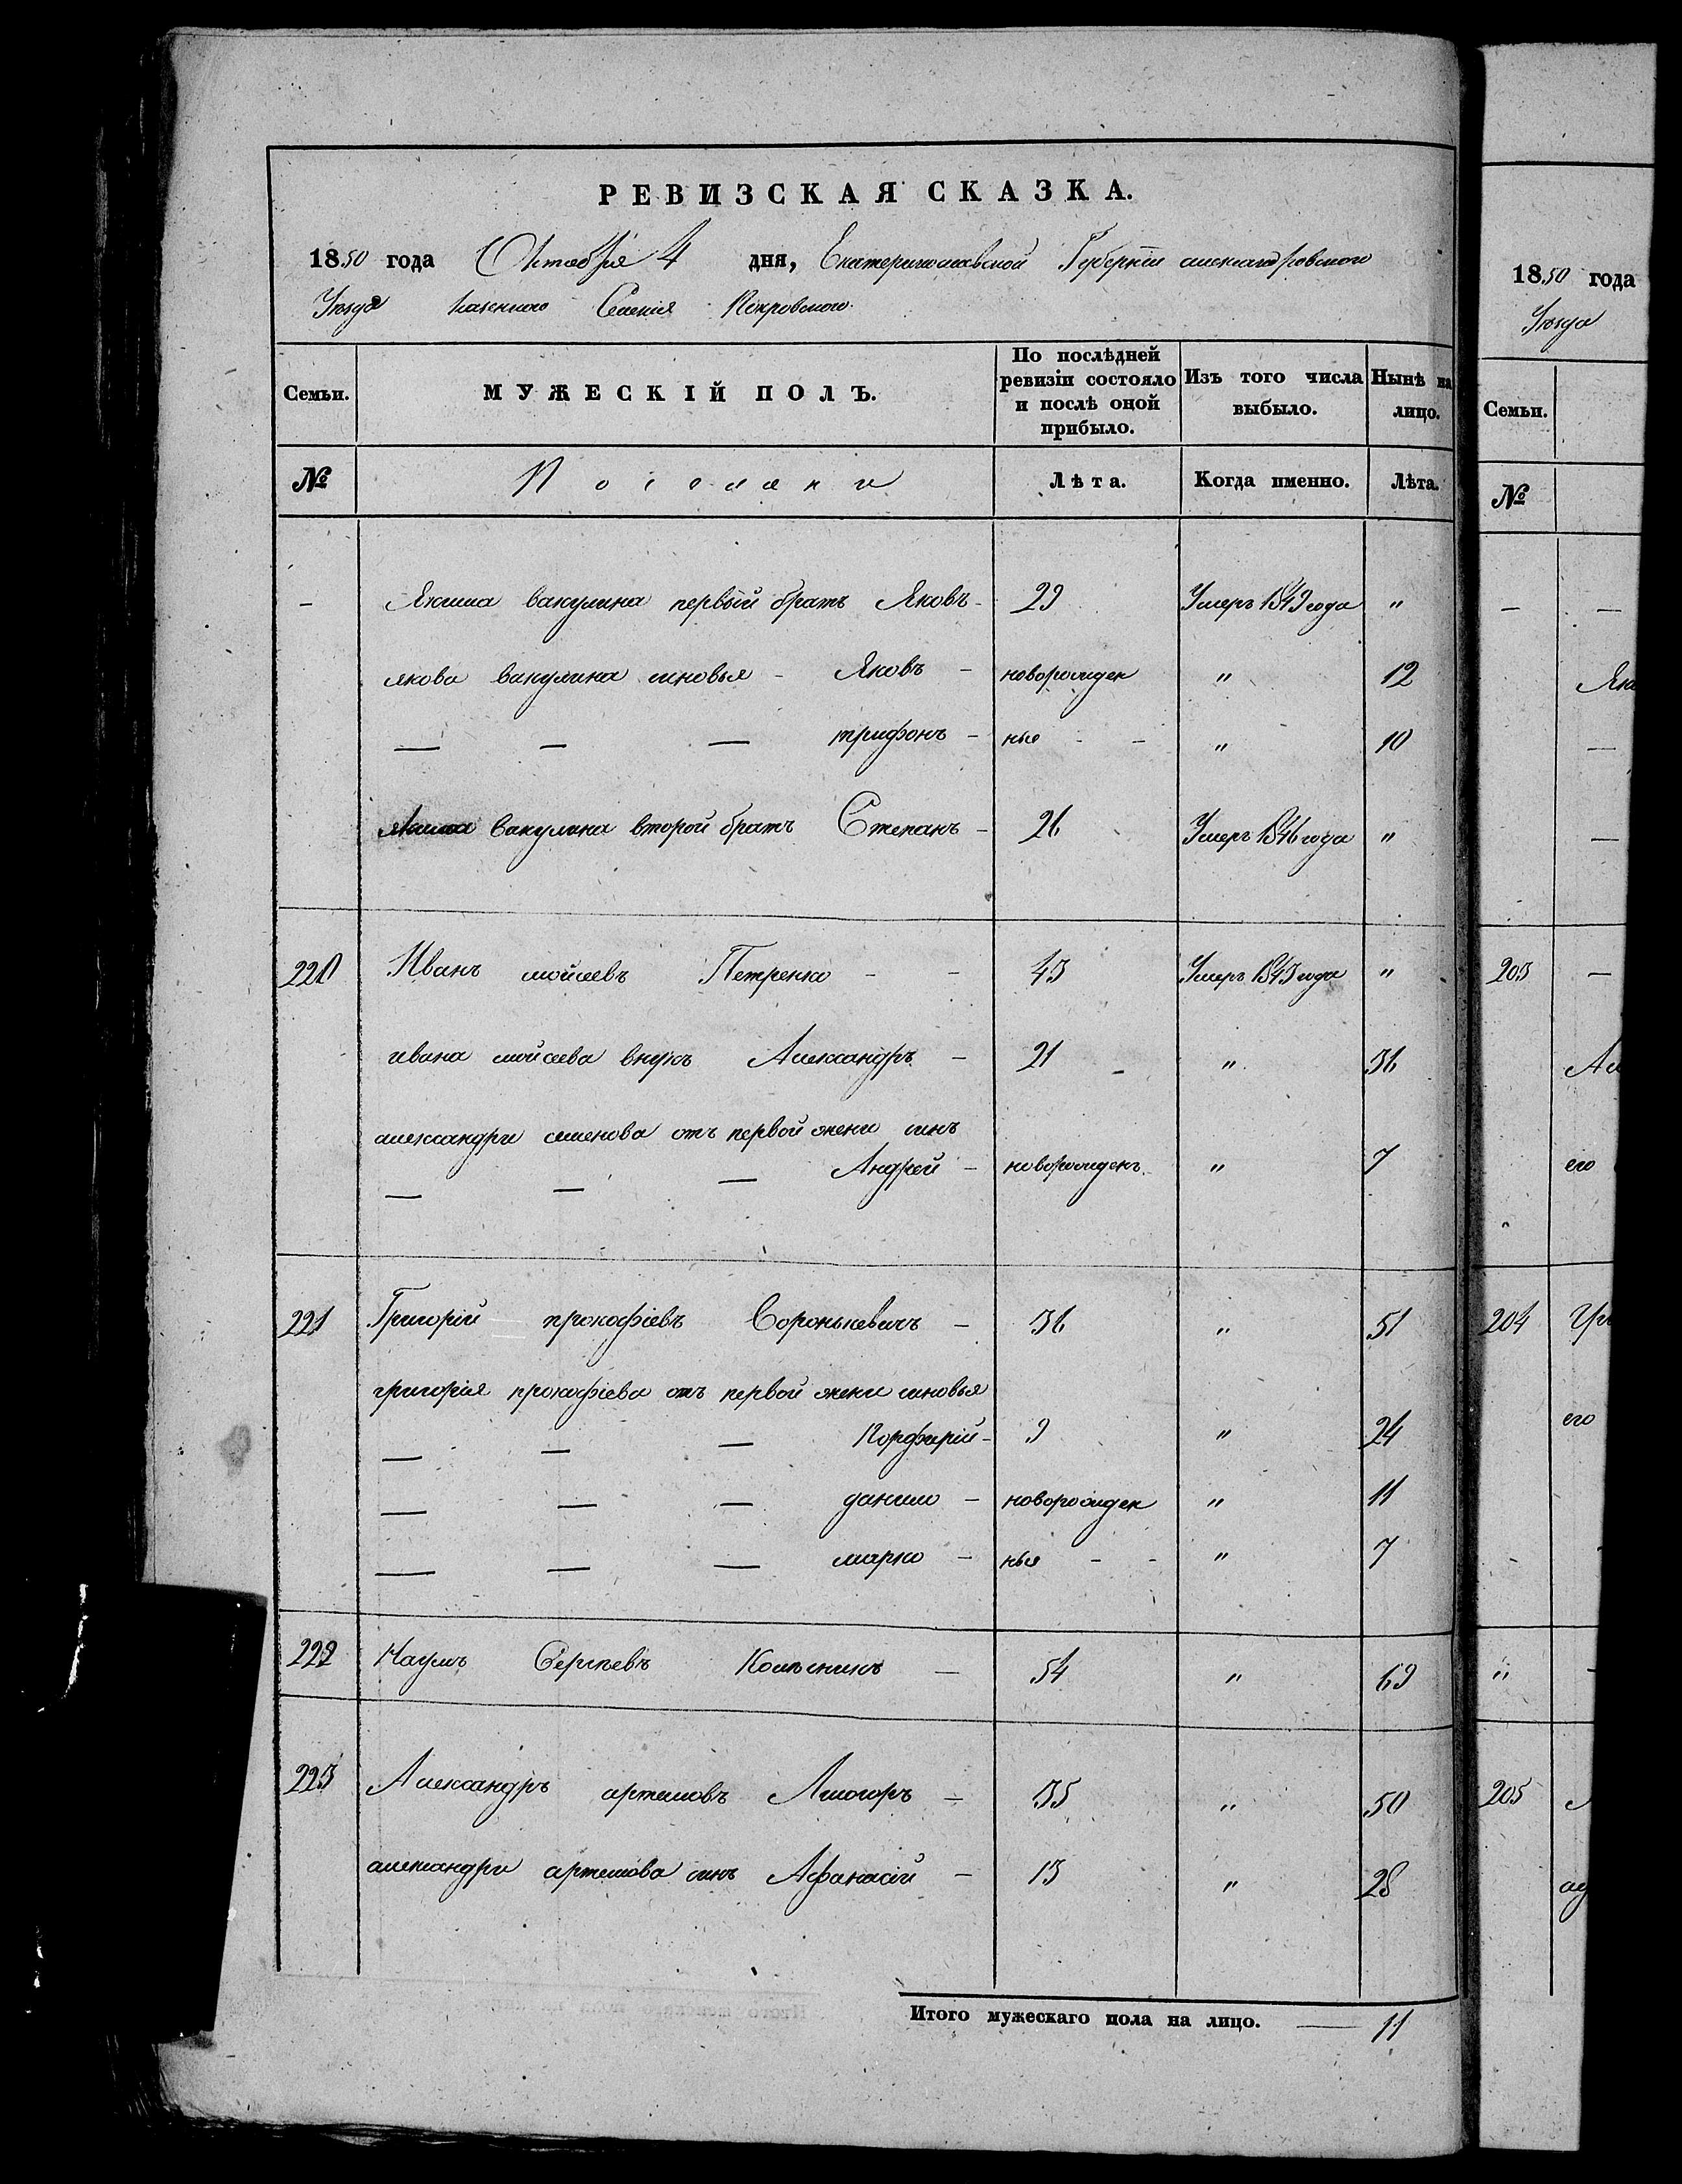 РЕВИЗСКАЯ СКАЗКА.
1850 года Октября 4 дня, Екатеринославской Губернiи александровского
Уѣзда казенного Селенiя Покровского
Семьи. МУЖЕСКIЙ ПОЛЪ. По послѣдней ревизiи состояло и послѣ оной прибыло. Изъ того числа выбыло. Нынѣ на лицо.
№ Поселяни Лѣта. Когда именно. Лѣта.
— Якима вакулина первый братъ Яковъ — 29 Умеръ 1849 года "
якова вакулина синовья - Яковъ - новорожден " 12
— — — трифонъ - ные - - " 10
вакулина второй братъ Степанъ - 26 Умеръ 1846 года "
220 Иванъ мойсеевъ Петренко - - 43 Умеръ 1843 года "
ивана мойсеева внукъ Александръ - 21 - " 36
александри семенова отъ первой жени синъ
— — — Андрей - новорожденъ " 7
221 Григорiй прокофiевъ Воронькевичъ - 36 " 51
григорiя прокофiева отъ первой жени синовья
— — — Порфирiй - 9 " 24
— — — данило - новорожден " 11
— — — марко - ные - - " 7
222 Наумъ Сергѣевъ Колѣсникъ — 54 " 69
223 Александръ артемовъ - 35 " 50
александри артемова синъ Афанасiй - 13 " 28
Итого мужескаго пола на лицо. — 11
1850 года
Уѣзда
Семьи.
№
— —
Як
—
—
203 —
Ал
его
204 Гри
его
" -
205 А